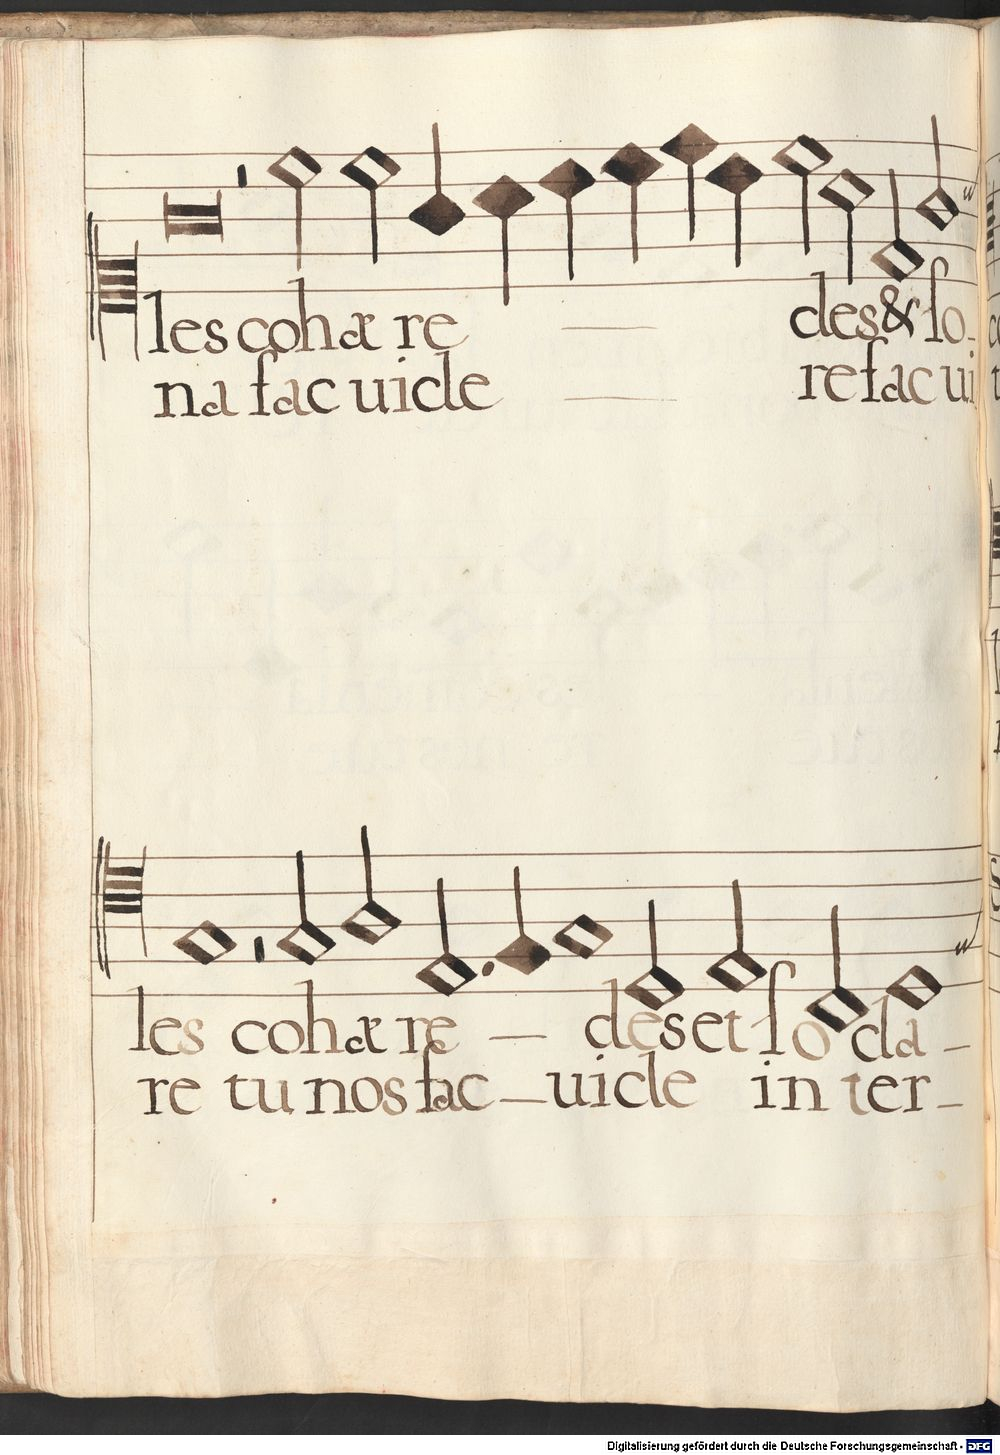 les cohære des & so-
na fac uide re fac ui
les cohære — des et so da -
re tu nos fac — uide in ter -
Digitalisierung gefördert durch die Deutsche Forschungsgemeinschaft - DFG